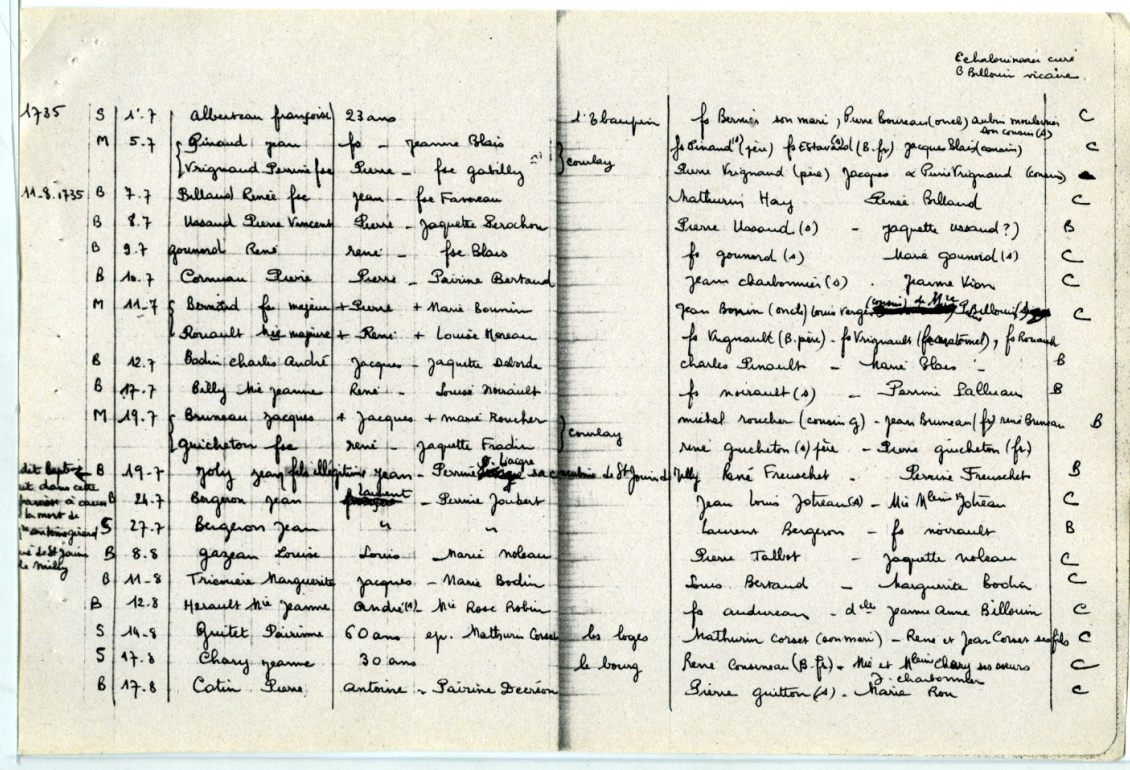 Echalouineau curé
B Billouin vicaire
1735 S 1'.7 Alberteau françoise 23 ans l'Ebaupin fs Bernier son mari, Pierre Boureau (oncl) aubin son cousin (s) C
M 5.7 Pinaud jean fs - Jeanne Blais fs Pinaud (s) (père) fs (B.fr) Jacques Blais (cousin) C
Vrignaud Perrine fse Pierre - fse gabilly coulay Pierre Vrignaud (père) Jacques & Vrignaud (cousin)
11-8.1735 B 7.7 Billaud Renée fse jean - fse Favreau Mathurin Hay Renée Billaud C
B 8.7 Ussaud Pierre Vincent Pierre - Jaquette Perochon Pierre Ussaud (s) - Jaquette Ussaud ?) B
B 9.7 gounord René rené - fse Blais fs gounord (s) Marie gounord (s) C
B 10.7 Cornuau Pierre - Poirine Bertaud Jean charbonnier (s) . Jeanne C
M 11-7 Bernard fs majeur + Pierre + Marie Bounin Jean Bonin (oncl) Louis Verger (cousin) Billouin C
Rouault majeure + René + Louise Moreau fs Vrignault (B.père) - fs Vrignault fs Rouault
B 12.7 Bodin charles André Jacques - Jaquette Delorde charles Pinault - Marie Blais - B
B 17.7 Billy Mie jeanne René - Louise Noirault fs noirault (s) - Perrine Lalluau B
M 19.7 Bruneau Jacques + Jacques + marie Roucher michel roucher (cousin g) - Jean Bruneau (fr) rené Bruneau B
Guicheton fse rené - Jaquette Fradin coulay rené guicheton (s) père - Pierre guicheton (fr)
dit bapt B 19-7 Joly Jean fils illégitime Jean - Perrine sa cousine de St Jouin de Milly René Freuschet . Perrine Freuschet B
dans cette
B 24.7 Bergeron Jean Laurent - Perrine Joubert Jean Louis Joteau (s) - Mie Joteau C
la mort de
S 27.7 Bergeron Jean " " Laurent Bergeron - fs noirault B
de St Jouin
de Milly B 8.8 gazeau Louise Louis - Marie Noleau Pierre Talbot - Jaquette noleau C
B 11-8 Marguerite Jacques - Marie Bodin Louis Bertaud - Marguerite Bodin C
B 12.8 Herault Mie Jeanne André (s) - Mie Rose Robin fs audureau - dlle Jeanne Anne Billouin C
S 14-8 Guitet Poirinne 60 ans ep. Mathurin Corset les loges Mathurin corset (son mari) - René et Jean Corset ses fils C
S 17.8 Chary Jeanne 30 ans le bourg René (B.fr) - Mie et Chary ses soeurs C
J. charbonnier
B 17.8 Cotin Pierre Antoine - Poirine Decréon Pierre guitton (s) - Marie Rou C